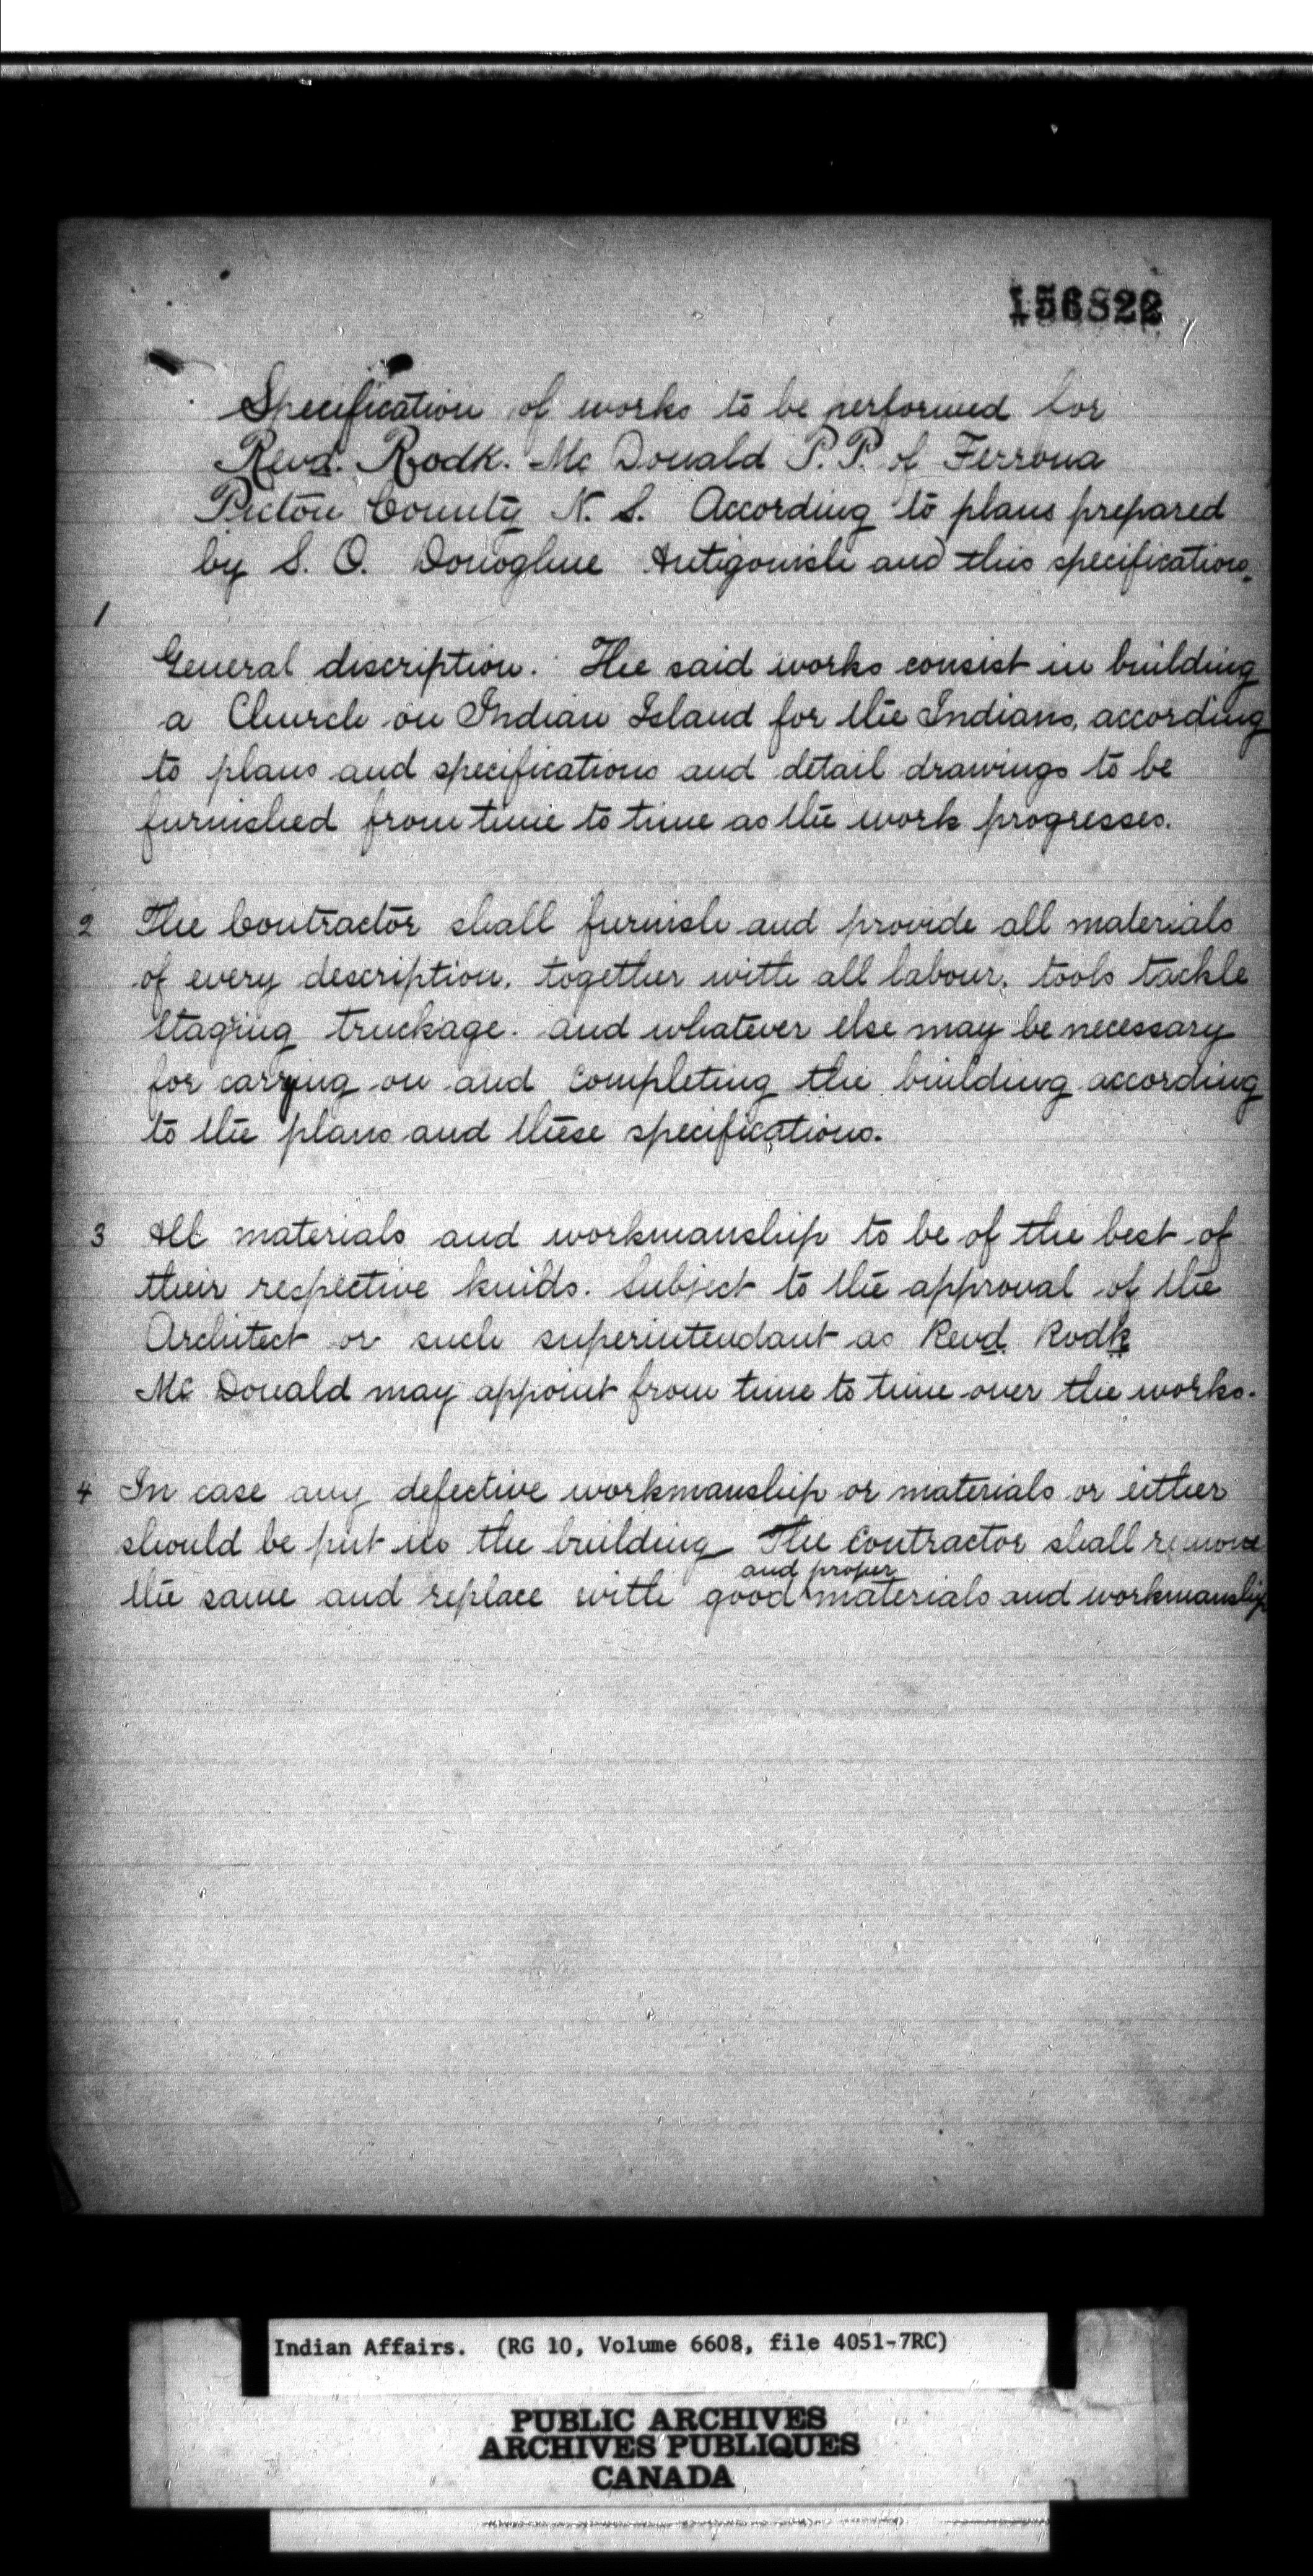 156822
Specification of works to be performed for
Revd. Rodk. Mc Donald P. P. of Ferrona
Pictou County N. S. According to plans prepared
by S. O. Donoghue Antigonish and this specifications.
1
General description. The said works consist in building
a Church on Indian Island for the Indians, according
to plans and specifications and detail drawings to be
furnished from time to time as the work progresses.
2 The Contractor shall furnish and provide all materials
of every description, together with all labour, tools tackle
staging truckage. and whatever else may be necessary
for carrying on and completing the building according
to the plans and these specifications.
3 All materials and workmanship to be of the best of
their respective kinds. Subject to the approval of the
Architect or such superintendant as Revd. Rodk
Mc Donald may appoint from time to time over the works.
4 In case any defective workmanship or materials or either
should be put in the building The Contractor shall remove
and proper
the same and replace with good materials and workmanship
Indian Affairs. (RG 10, Volume 6608, file 4051-7RC)
PUBLIC ARCHIVES
ARCHIVES PUBLIQUES
CANADA